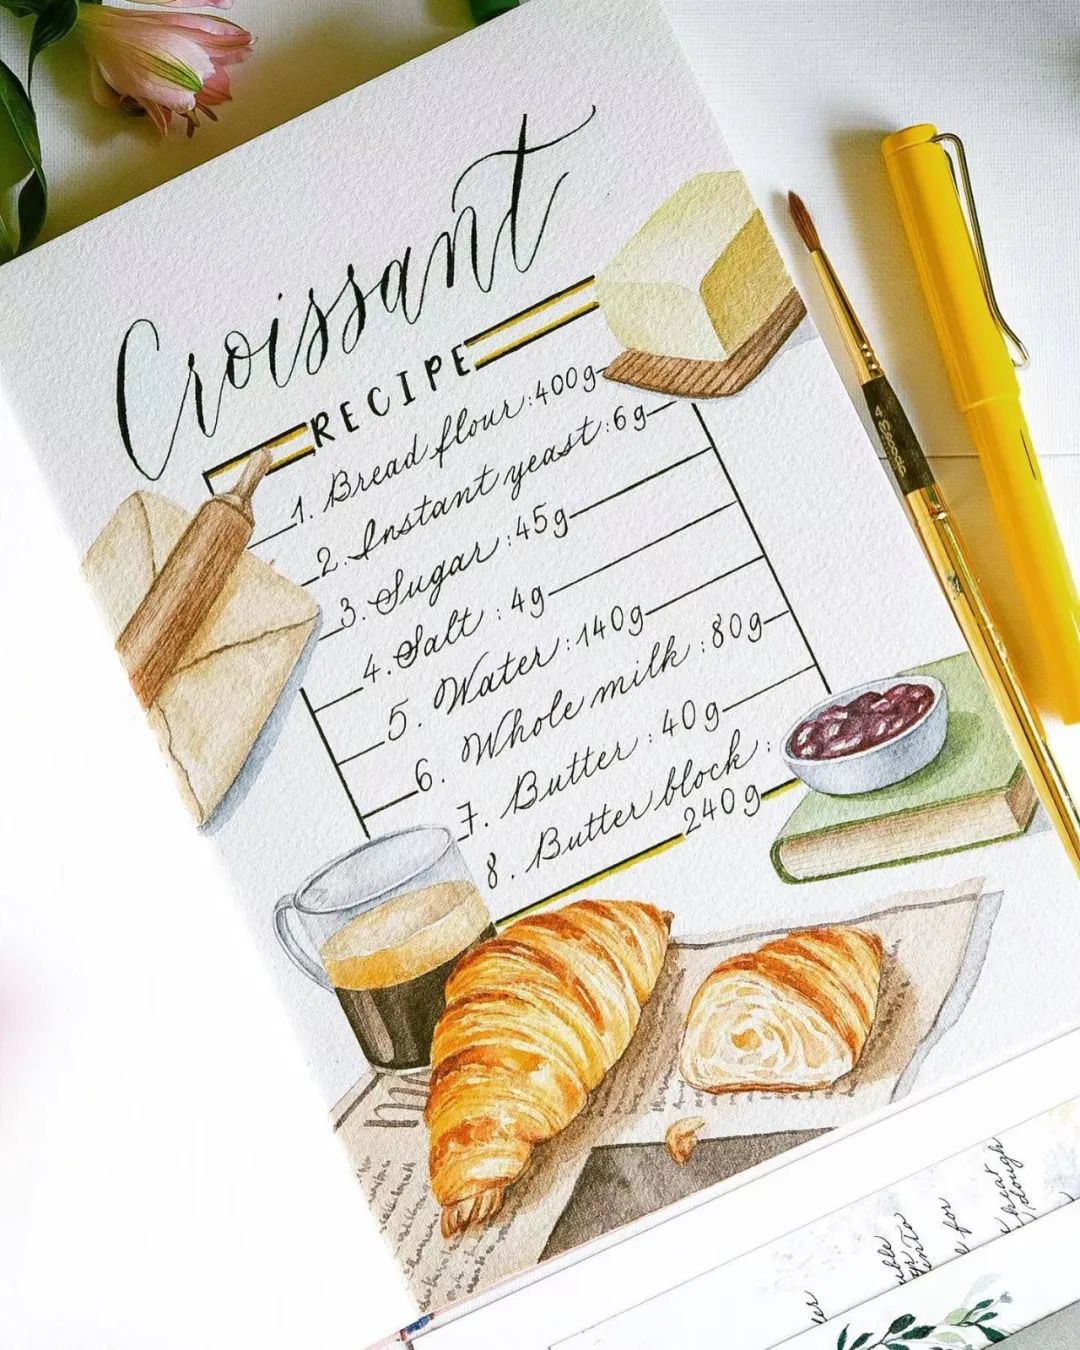 Croissant
RECIPE
1. Bread flour : 400g
2. Instant yeast : 6g
3. Sugar : 45g
4. Salt : 4g
5. Water : 140g
6. Whole milk : 80g
7. Butter : 40g
8. Butter block :
240g
for
dough